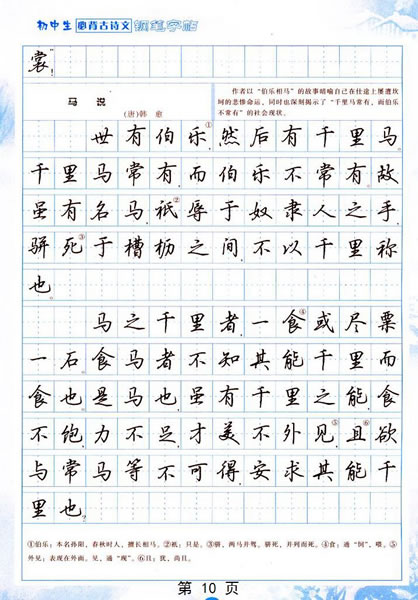 初中生 必背古诗文 钢笔字帖
裳!”
马 说
(唐)韩 愈
作者以“伯乐相马”的故事暗喻自己在仕途上屡遭坎
坷的悲惨命运,同时也深刻揭示了“千里马常有,而伯乐
不常有”的社会现状。
世有伯乐①,然后有千里马。
千里马常有,而伯乐不常有。故
虽有名马,祗②辱于奴隶人之手,
骈死③于槽枥之间,不以千里称
也。
马之千里者,一食④或尽粟
一石。食马者不知其能千里而
食也。是马也,虽有千里之能,食
不饱,力不足,才美不外见⑤,且⑥欲
与常马等不可得,安求其能千
里也?
①伯乐:本名孙阳,春秋时人,擅长相马。②祗:只是。③骈,两马并驾。骈死,并列而死。④食:通“饲”,喂。⑤
外见:表现在外面。见,通“现”。⑥且:犹,尚且。
第 10 页